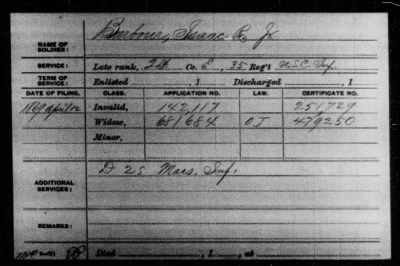 NAME OF SOLDIER: Barbour, Isaac R. Jr
SERVICE: Late rank, Co. E, 35 Reg't U.S.C. Inf.
TERM OF SERVICE: Enlisted , 1 Discharged , 1
DATE OF FILING. CLASS. APPLICATION NO. LAW. CERTIFICATE NO.
Invalid, 142117 251729
Widow, 681684 O J 479250
Minor,
ADDITIONAL SERVICES: D 25 Mass. Inf.
REMARKS:
Died , 1 , at